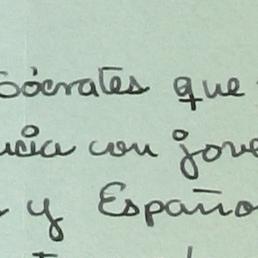 Sócrates que
ucia con jove
y Españo